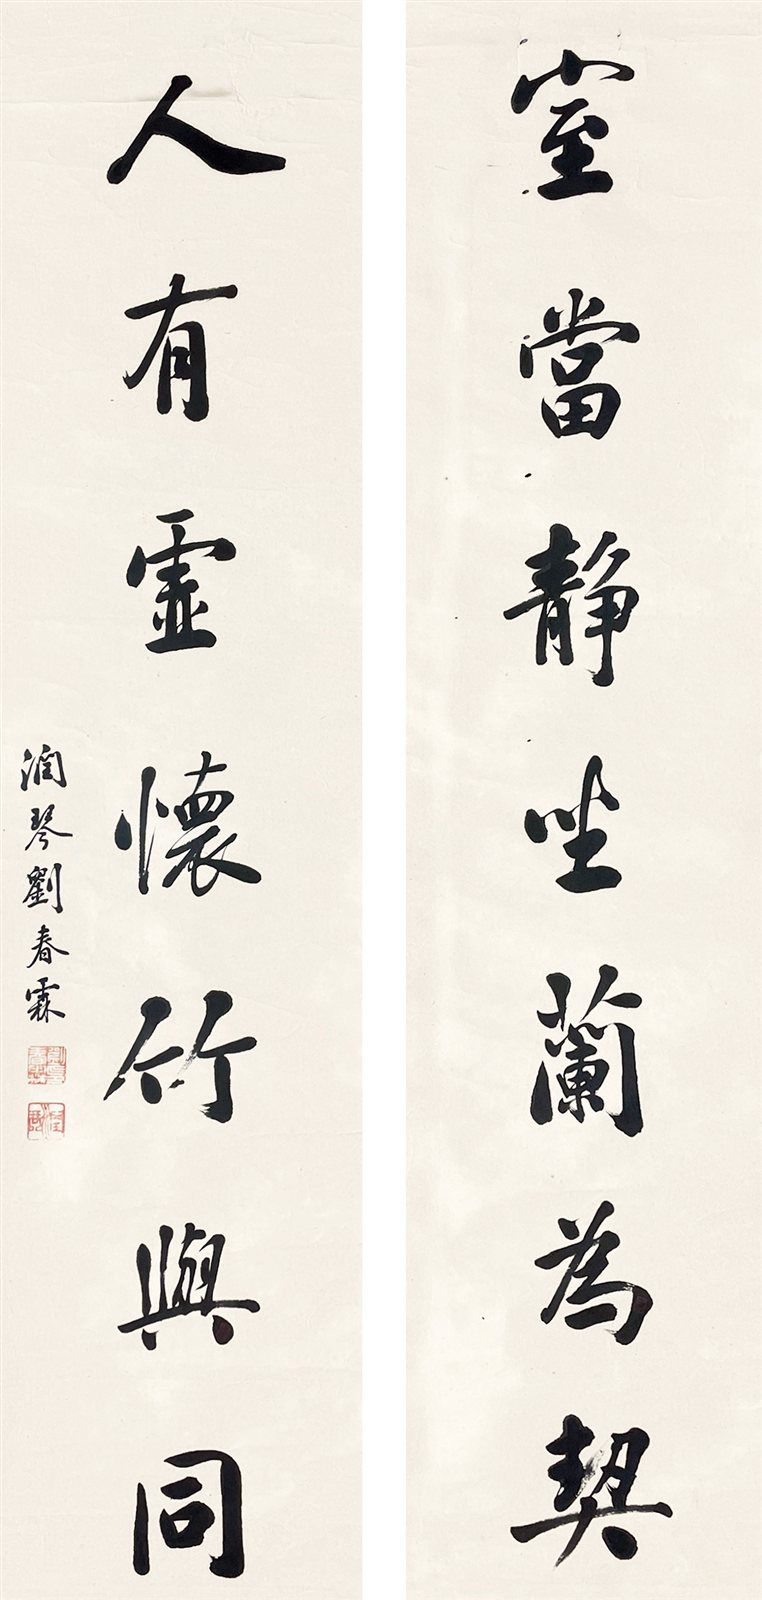 室當静坐蘭為契
人有虛懷竹與同
潤琴劉春霖